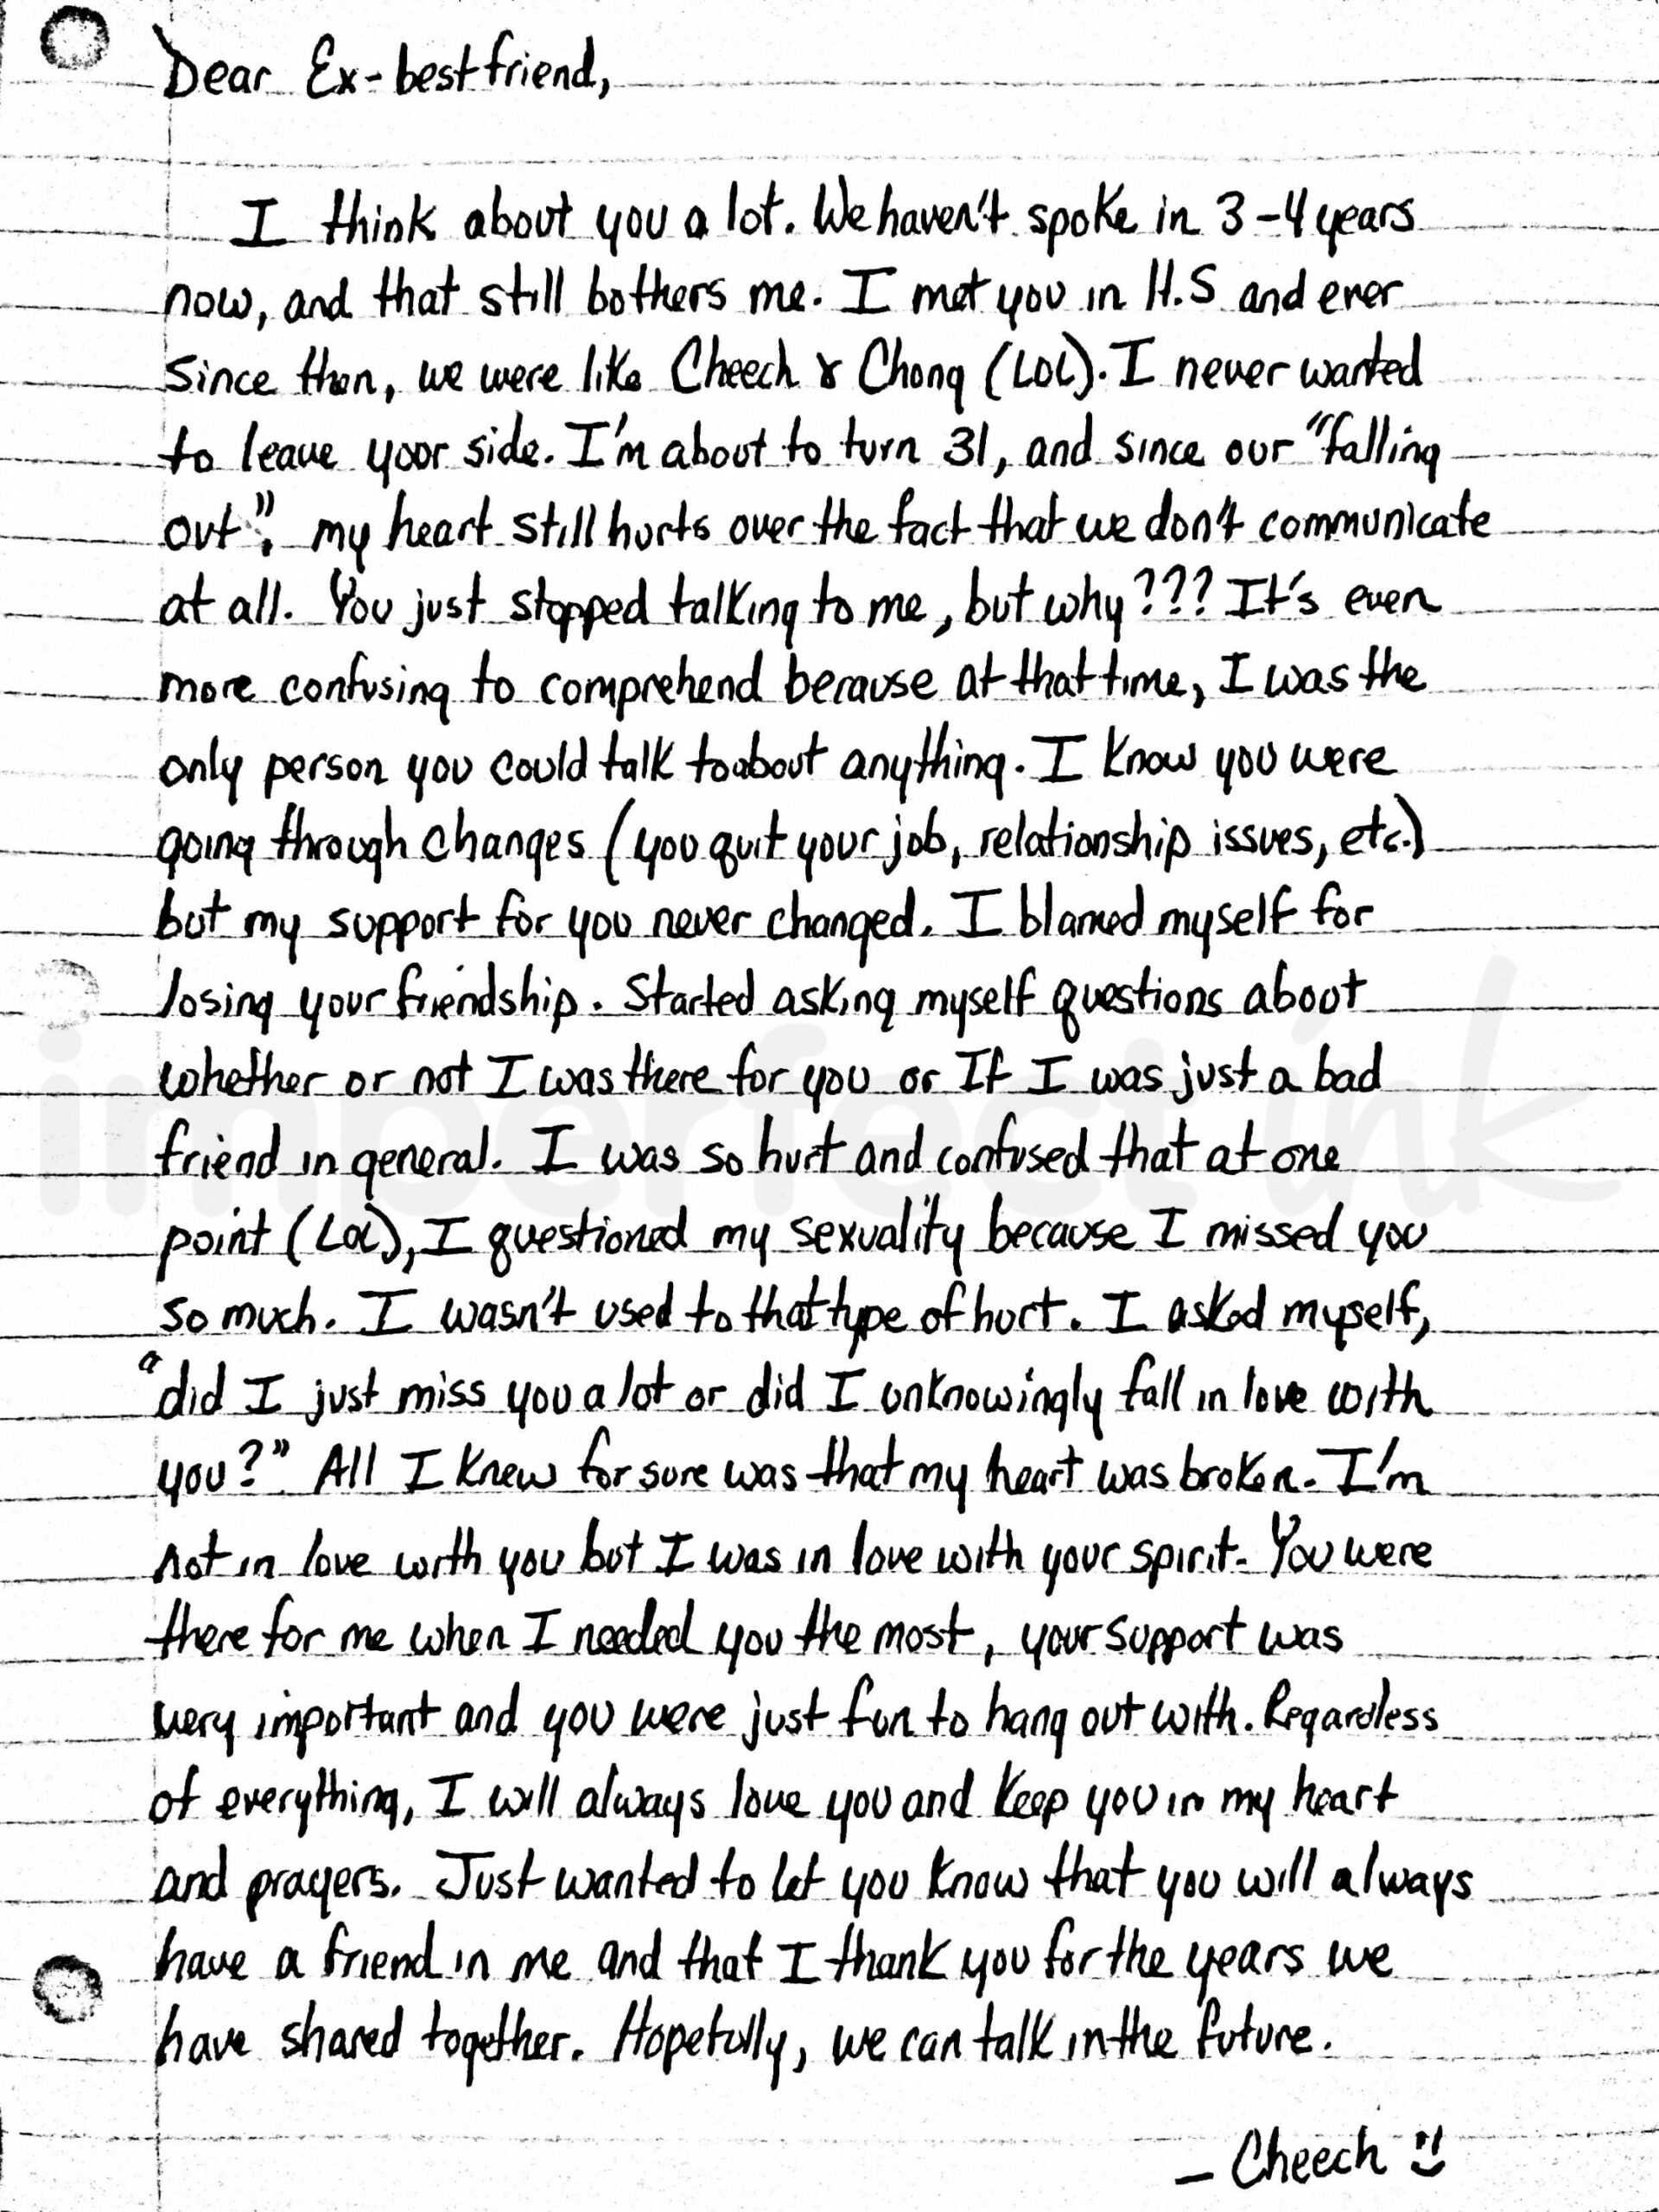 Dear Ex-bestfriend,
I think about you a lot. We haven't spoke in 3-4 years
now, and that still bothers me. I met you in H.S and ever
since then, we were like Cheech & Chong (LOL). I never wanted
to leave your side. I'm about to turn 31, and since our "falling
out", my heart still hurts over the fact that we don't communicate
at all. You just stopped talking to me, but why??? It's even
more confusing to comprehend because at that time, I was the
only person you could talk to about anything. I know you were
going through changes (you quit your job, relationship issues, etc.)
but my support for you never changed. I blamed myself for
losing your friendship. Started asking myself questions about
whether or not I was there for you or If I was just a bad
friend in general. I was so hurt and confused that at one
point (LOL), I questioned my sexuality because I missed you
so much. I wasn't used to that type of hurt. I asked myself,
"did I just miss you a lot or did I unknowingly fall in love with
you?" All I knew for sure was that my heart was broken. I'm
not in love with you but I was in love with your spirit. You were
there for me when I needed you the most, your support was
very important and you were just fun to hang out with. Regardless
of everything, I will always love you and keep you in my heart
and prayers. Just wanted to let you know that you will always
have a friend in me and that I thank you for the years we
have shared together. Hopefully, we can talk in the future.
- Cheech
imperfect ink